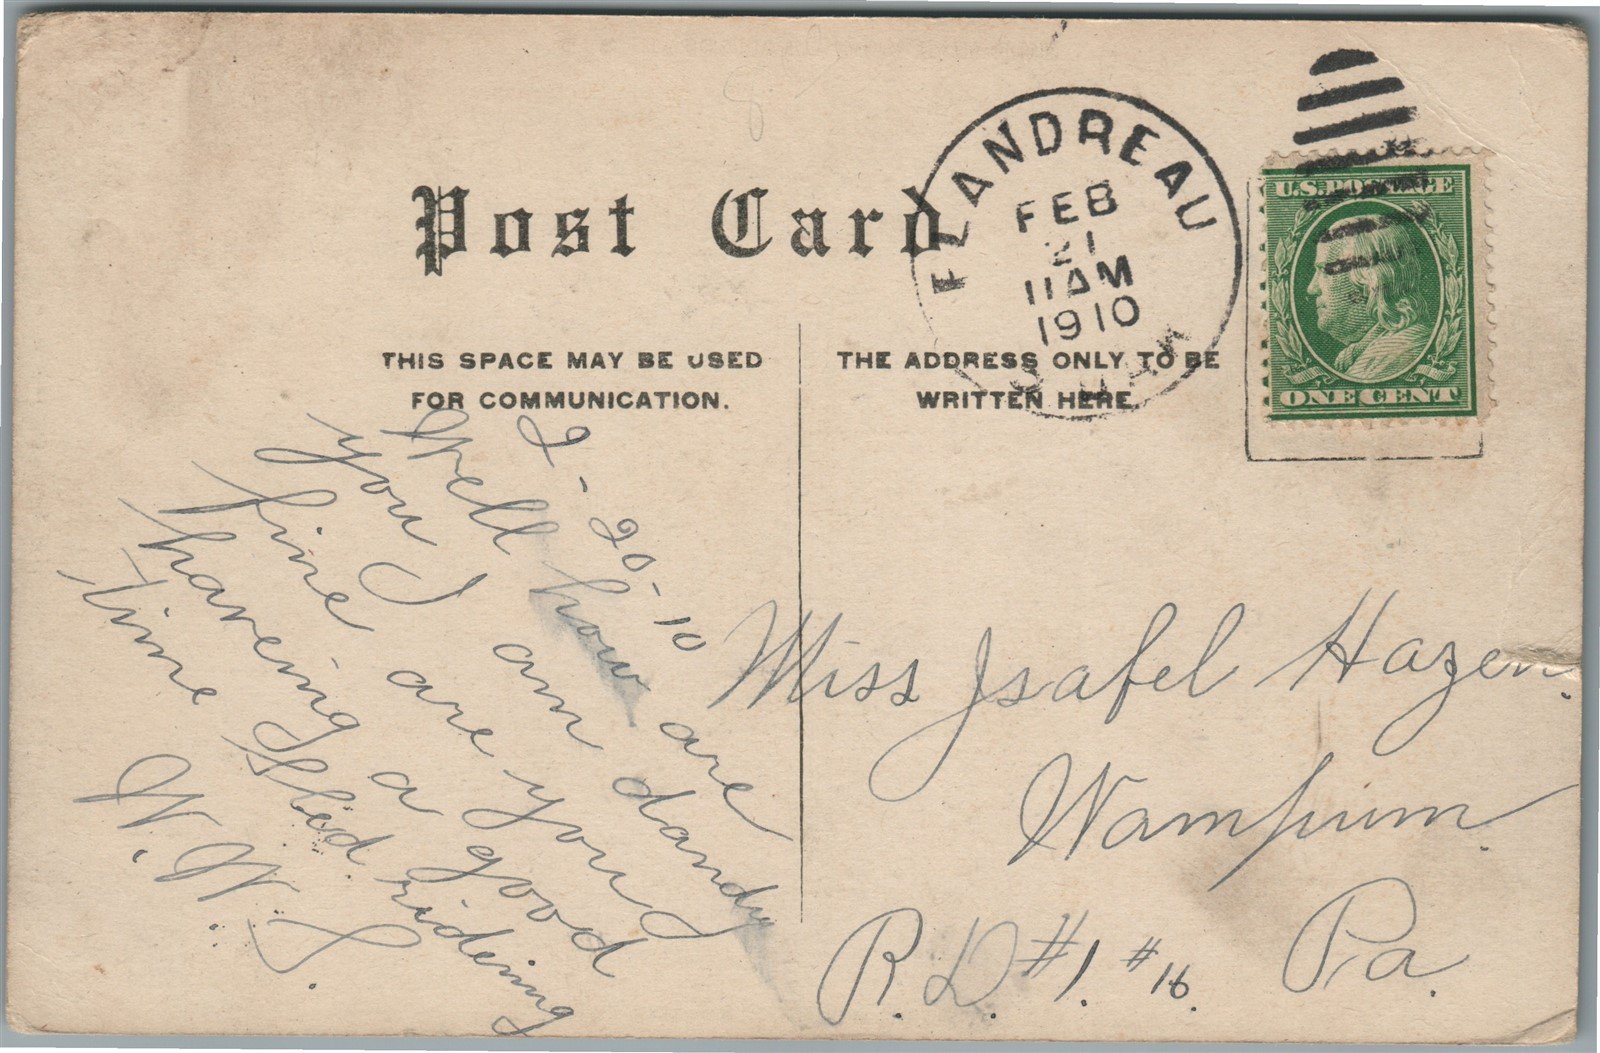 Post Card
THIS SPACE MAY BE USED
FOR COMMUNICATION.
THE ADDRESS ONLY TO BE
WRITTEN HERE.
FLANDREAU
FEB
21
11AM
1910
S. DAK
U.S. POSTAGE
ONE CENT
2-20-10
Well how are
you I am dandy
fine are you
haveing a good
time Sled rideing
W. W. S.
Miss Isabel Hazen.
Wampum.
R.D. #1. #16. Pa.